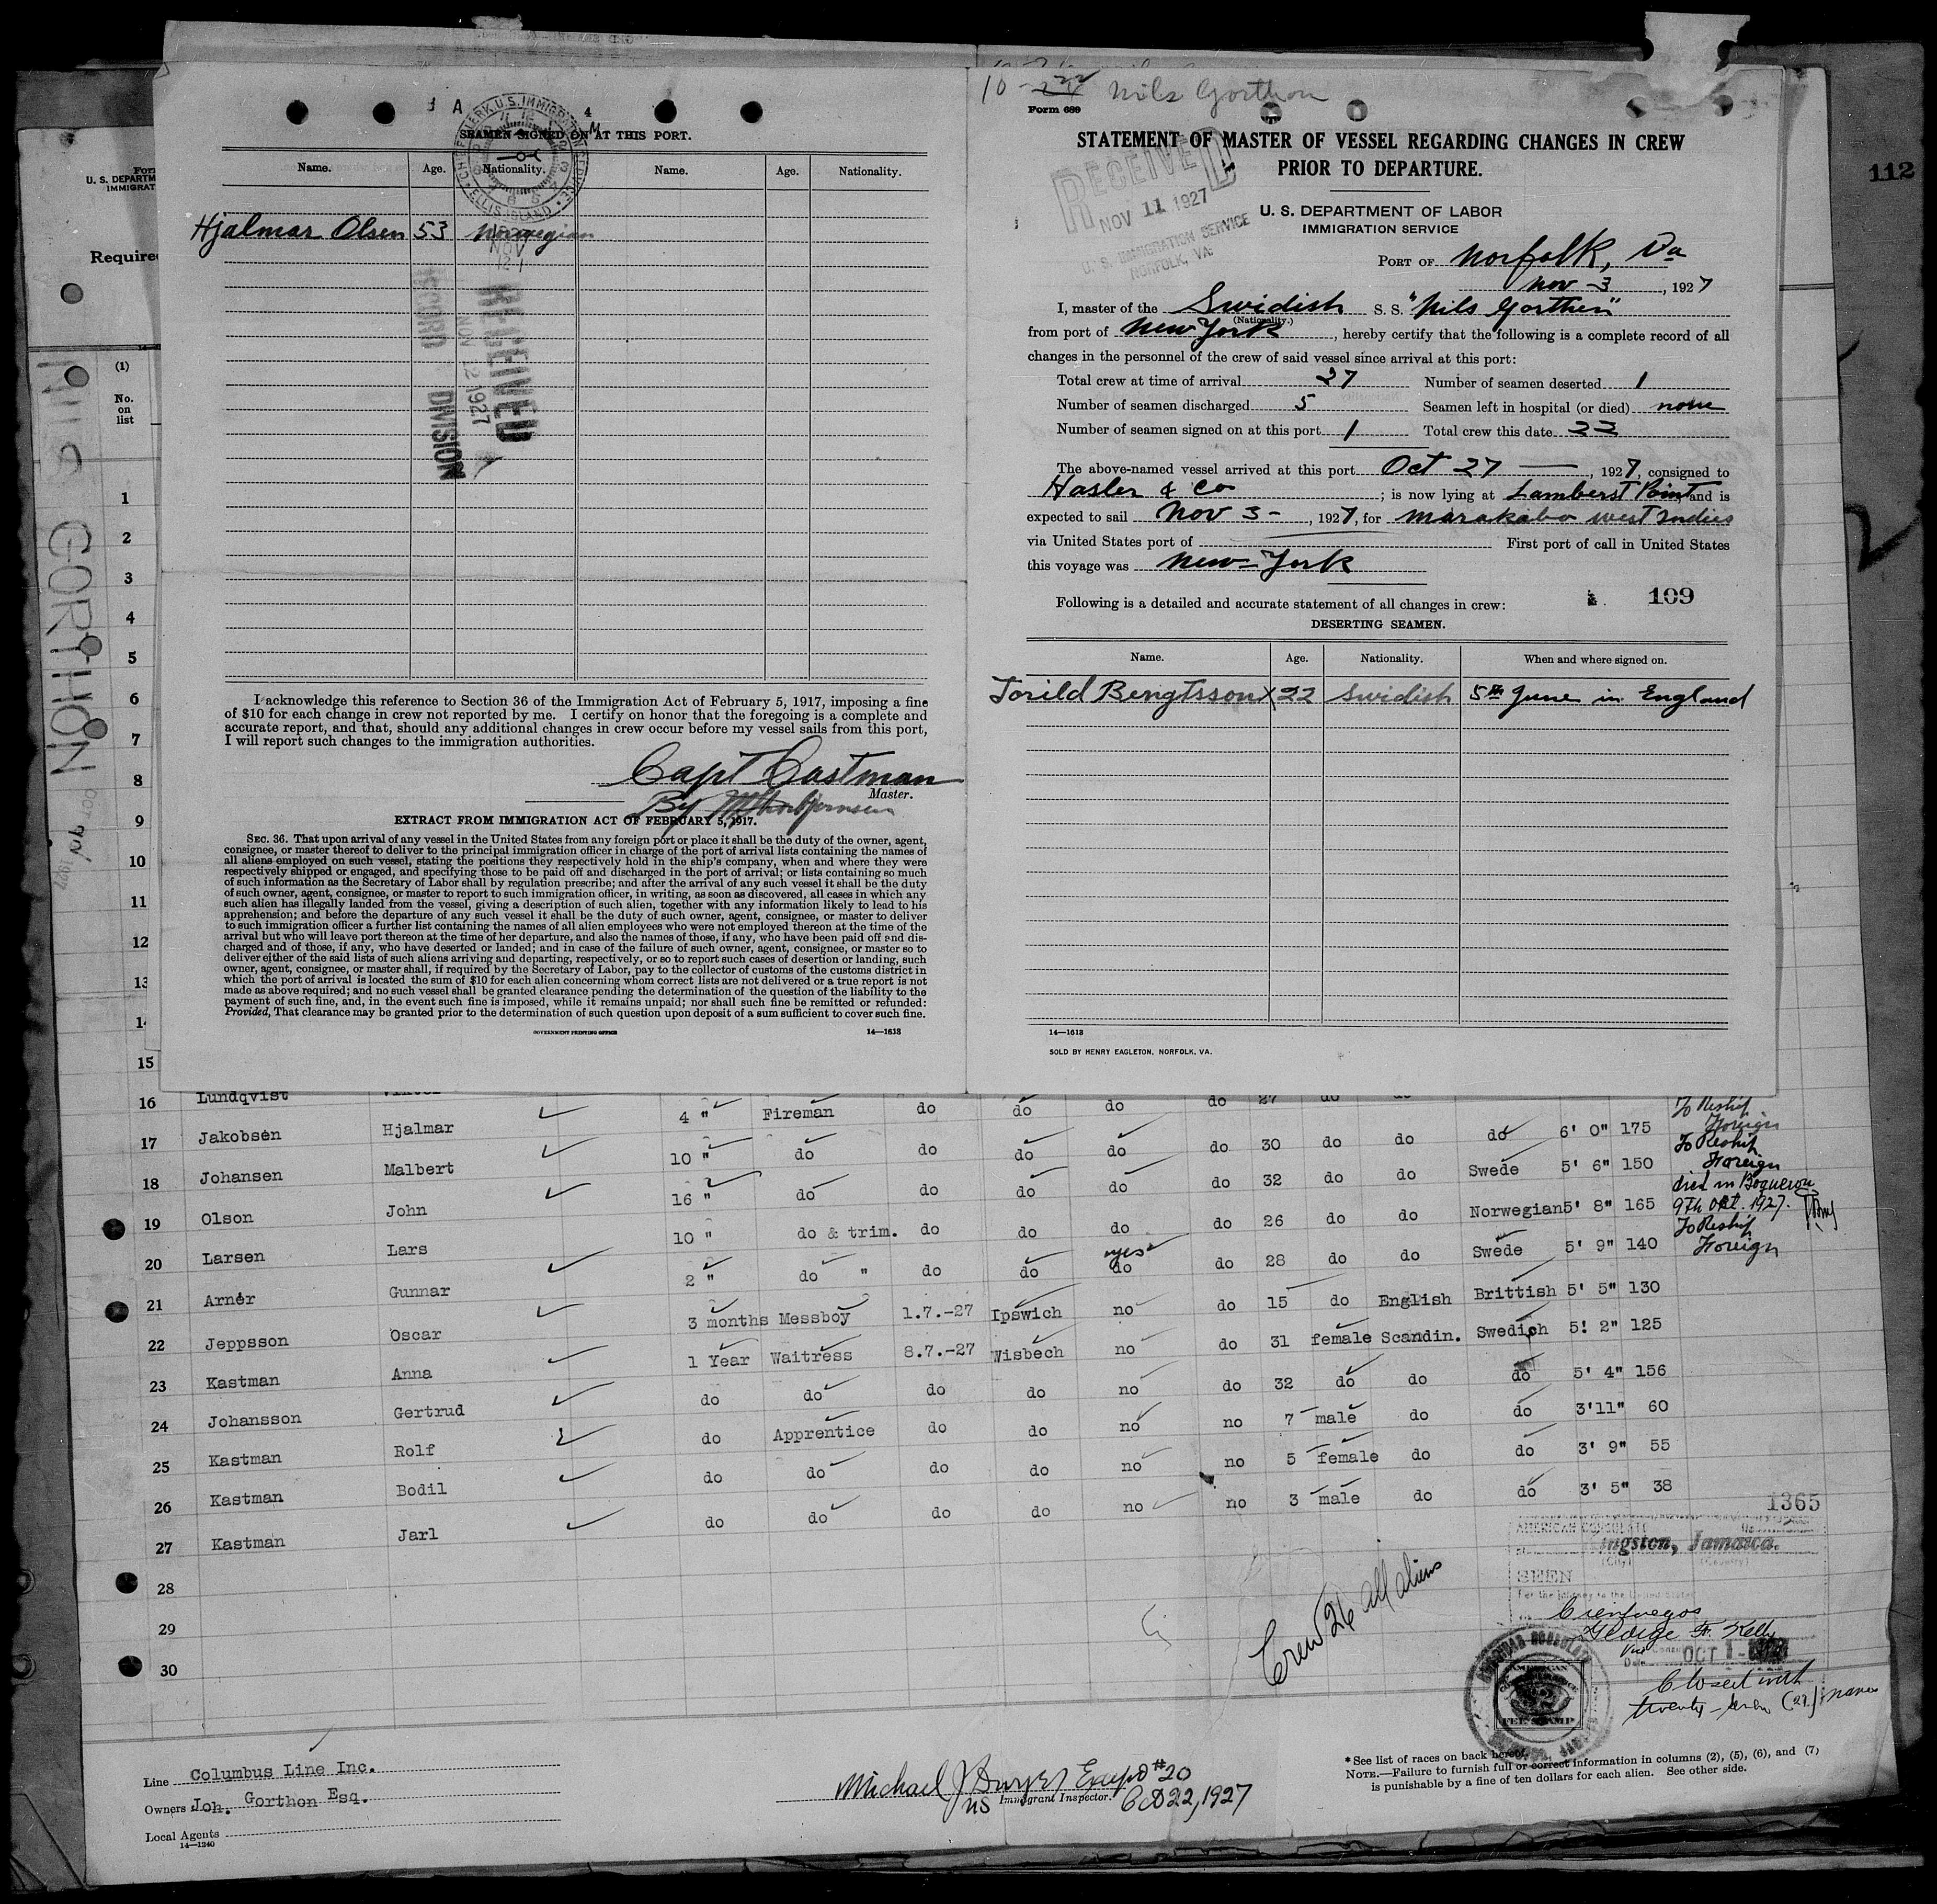 SEAMEN SIGNED ON AT THIS PORT.
Name. Age. Nationality. Name. Age. Nationality.
CHF CLERK, U.S. IMMIGRATION SERVICE
ELLIS ISLAND
Hjalmar Olsen 53 Norwegian
NOV
RECEIVED
NOV 12 1927
RECORD DIVISION
I acknowledge this reference to Section 36 of the Immigration Act of February 5, 1917, imposing a fine
of $10 for each change in crew not reported by me. I certify on honor that the foregoing is a complete and
accurate report, and that, should any additional changes in crew occur before my vessel sails from this port,
I will report such changes to the immigration authorities.
Capt Castman
Master.
By
EXTRACT FROM IMMIGRATION ACT OF FEBRUARY 5, 1917.
SEC. 36. That upon arrival of any vessel in the United States from any foreign port or place it shall be the duty of the owner, agent,
consignee, or master thereof to deliver to the principal immigration officer in charge of the port of arrival lists containing the names of
all aliens employed on such vessel, stating the positions they respectively hold in the ship's company, when and where they were
respectively shipped or engaged, and specifying those to be paid off and discharged in the port of arrival; or lists containing so much
of such information as the Secretary of Labor shall by regulation prescribe; and after the arrival of any such vessel it shall be the duty
of such owner, agent, consignee, or master to report to such immigration officer, in writing, as soon as discovered, all cases in which any
such alien has illegally landed from the vessel, giving a description of such alien, together with any information likely to lead to his
apprehension; and before the departure of any such vessel it shall be the duty of such owner, agent, consignee, or master to deliver
to such immigration officer a further list containing the names of all alien employees who were not employed thereon at the time of the
arrival but who will leave port thereon at the time of her departure, and also the names of those, if any, who have been paid off and dis-
charged and of those, if any, who have deserted or landed; and in case of the failure of such owner, agent, consignee, or master so to
deliver either of the said lists of such aliens arriving and departing, respectively, or so to report such cases of desertion or landing, such
owner, agent, consignee, or master shall, if required by the Secretary of Labor, pay to the collector of customs of the customs district in
which the port of arrival is located the sum of $10 for each alien concerning whom correct lists are not delivered or a true report is not
made as above required; and no such vessel shall be granted clearance pending the determination of the question of the liability to the
payment of such fine, and, in the event such fine is imposed, while it remains unpaid; nor shall such fine be remitted or refunded:
Provided, That clearance may be granted prior to the determination of such question upon deposit of a sum sufficient to cover such fine.
GOVERNMENT PRINTING OFFICE 14—1613
Nils Gorthon
Form 689
STATEMENT OF MASTER OF VESSEL REGARDING CHANGES IN CREW
PRIOR TO DEPARTURE.
RECEIVED
NOV 11 1927
U. S. IMMIGRATION SERVICE
NORFOLK, VA.
U. S. DEPARTMENT OF LABOR
IMMIGRATION SERVICE
PORT OF Norfolk, Va
Nov 3, 1927
I, master of the Swidish S. S. "Nils Gorthen"
(Nationality.)
from port of New York, hereby certify that the following is a complete record of all
changes in the personnel of the crew of said vessel since arrival at this port:
Total crew at time of arrival 27 Number of seamen deserted 1
Number of seamen discharged 5 Seamen left in hospital (or died) none
Number of seamen signed on at this port 1 Total crew this date 22
The above-named vessel arrived at this port Oct 27, 1927, consigned to
Hasler & Co; is now lying at Lamberst Point, and is
expected to sail Nov 3-, 1927, for Marakabo West Indies
via United States port of First port of call in United States
this voyage was New-York
Following is a detailed and accurate statement of all changes in crew:
109
DESERTING SEAMEN.
Name. Age. Nationality. When and where signed on.
Torild Bengtsson X 22 Swidish 5th June in England
14—1613
SOLD BY HENRY EAGLETON, NORFOLK, VA.
112
For
U. S. DEPARTM
IMMIGRAT
Require
(1)
No.
on
list
NILS GORTHON
1
2
3
4
5
6
7
8
9
10
11
12
13
14
15
16 Lundqvist 4 " Fireman do do do do 27 do do
17 Jakobsen Hjalmar 10 " do do do do do 30 do do do 6' 0" 175 To Reship Foreign
18 Johansen Malbert 16 " do do do do do 32 do do Swede 5' 6" 150 To Reship Foreign
19 Olson John 10 " do & trim. do do do do 26 do do Norwegian 5' 8" 165 died in Boqueron 9th Okt. 1927.
20 Larsen Lars 2 " do " do do yes do do 28 do do Swede 5' 9" 140 To Reship Foreign
21 Arnér Gunnar 3 months Messboy 1.7.-27 Ipswich no do 15 do English Brittish 5' 5" 130
22 Jeppsson Oscar 1 Year Waitress 8.7.-27 Wisbech no do 31 female Scandin. Swedish 5! 2" 125
23 Kastman Anna do do do do no do 32 do do do 5' 4" 156
24 Johansson Gertrud do Apprentice do do no no 7 male do do 3'11" 60
25 Kastman Rolf do do do do no no 5 female do do 3' 9" 55
26 Kastman Bodil do do do do no no 3 male do do 3' 5" 38
27 Kastman Jarl
28
29
30
1365
AMERICAN CONSULATE
ingston, Jamaica.
(City) (Country)
SEEN
For the journey to the United States
Cienfuegos
George F. Kelly
Date OCT 1-
Closed with
twenty-seven (27) names
AMERICAN
FEE STAMP
Crew 26 all aliens
Line Columbus Line Inc.
Owners Joh. Gorthon Esq.
Local Agents
14—1240
Michael J Dwyer #20
US Immigrant Inspector. Oct 22, 1927
*See list of races on back hereof.
NOTE.—Failure to furnish full or correct information in columns (2), (5), (6), and (7)
is punishable by a fine of ten dollars for each alien. See other side.